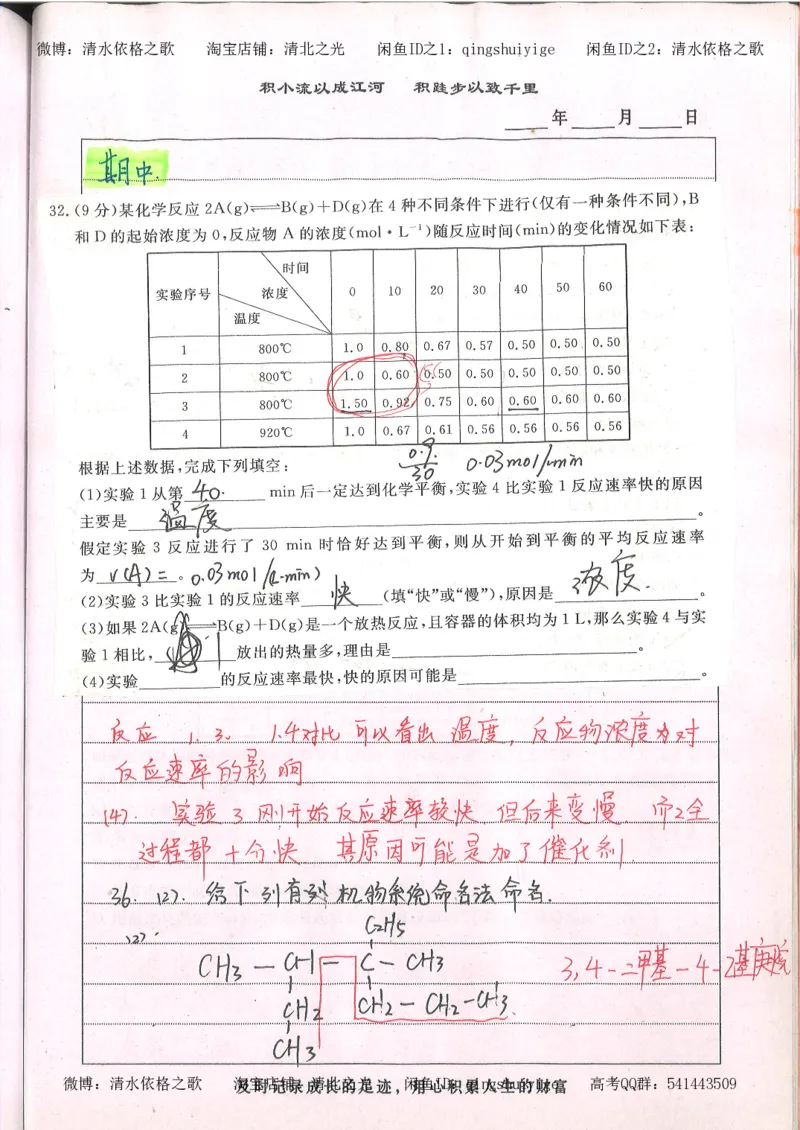 微博：清水依格之歌 淘宝店铺：清北之光 闲鱼ID之1：qingshuiyige 闲鱼ID之2：清水依格之歌
积小流以成江河 积跬步以致千里
____年____月____日
期中.
32.(9分)某化学反应 2A(g)⇌B(g)+D(g)在4种不同条件下进行(仅有一种条件不同),B
和D的起始浓度为0,反应物A的浓度(mol·L⁻¹)随反应时间(min)的变化情况如下表:
实验序号 时间 浓度 温度 0 10 20 30 40 50 60
1 800℃ 1.0 0.80 0.67 0.57 0.50 0.50 0.50
2 800℃ 1.0 0.60 0.50 0.50 0.50 0.50 0.50
3 800℃ 1.50 0.92 0.75 0.60 0.60 0.60 0.60
4 920℃ 1.0 0.67 0.61 0.56 0.56 0.56 0.56
0.9/30 0.03mol/min
根据上述数据,完成下列填空:
(1)实验1从第 40. min后一定达到化学平衡,实验4比实验1反应速率快的原因
主要是 温度 。
假定实验3反应进行了30 min时恰好达到平衡,则从开始到平衡的平均反应速率
为 v(A)= 。0.03mol/(L·min)
(2)实验3比实验1的反应速率 快 (填“快”或“慢”),原因是 浓度. 。
(3)如果2A(g)⇌B(g)+D(g)是一个放热反应,且容器的体积均为1 L,那么实验4与实
验1相比, 1 放出的热量多,理由是____。
(4)实验____的反应速率最快,快的原因可能是____。
反应 1.3. 1.4对比 可以看出 温度,反应物浓度为对
反应速率的影响
(4). 实验3刚开始反应速率较快 但后来变慢 而2全
过程都十分快 其原因可能是加了催化剂.
36. (2). 给下列有机物系统命名法命名.
(2).
C₂H₅
CH₃—CH—C—CH₃ 3,4-二甲基-4-乙基庚烷
CH₂ CH₂—CH₂—CH₃.
CH₃
微博：清水依格之歌 淘宝店铺：清北之光 闲鱼ID：qingshuiyige 高考QQ群：541443509
及时记录成长的足迹，用心积累人生的财富